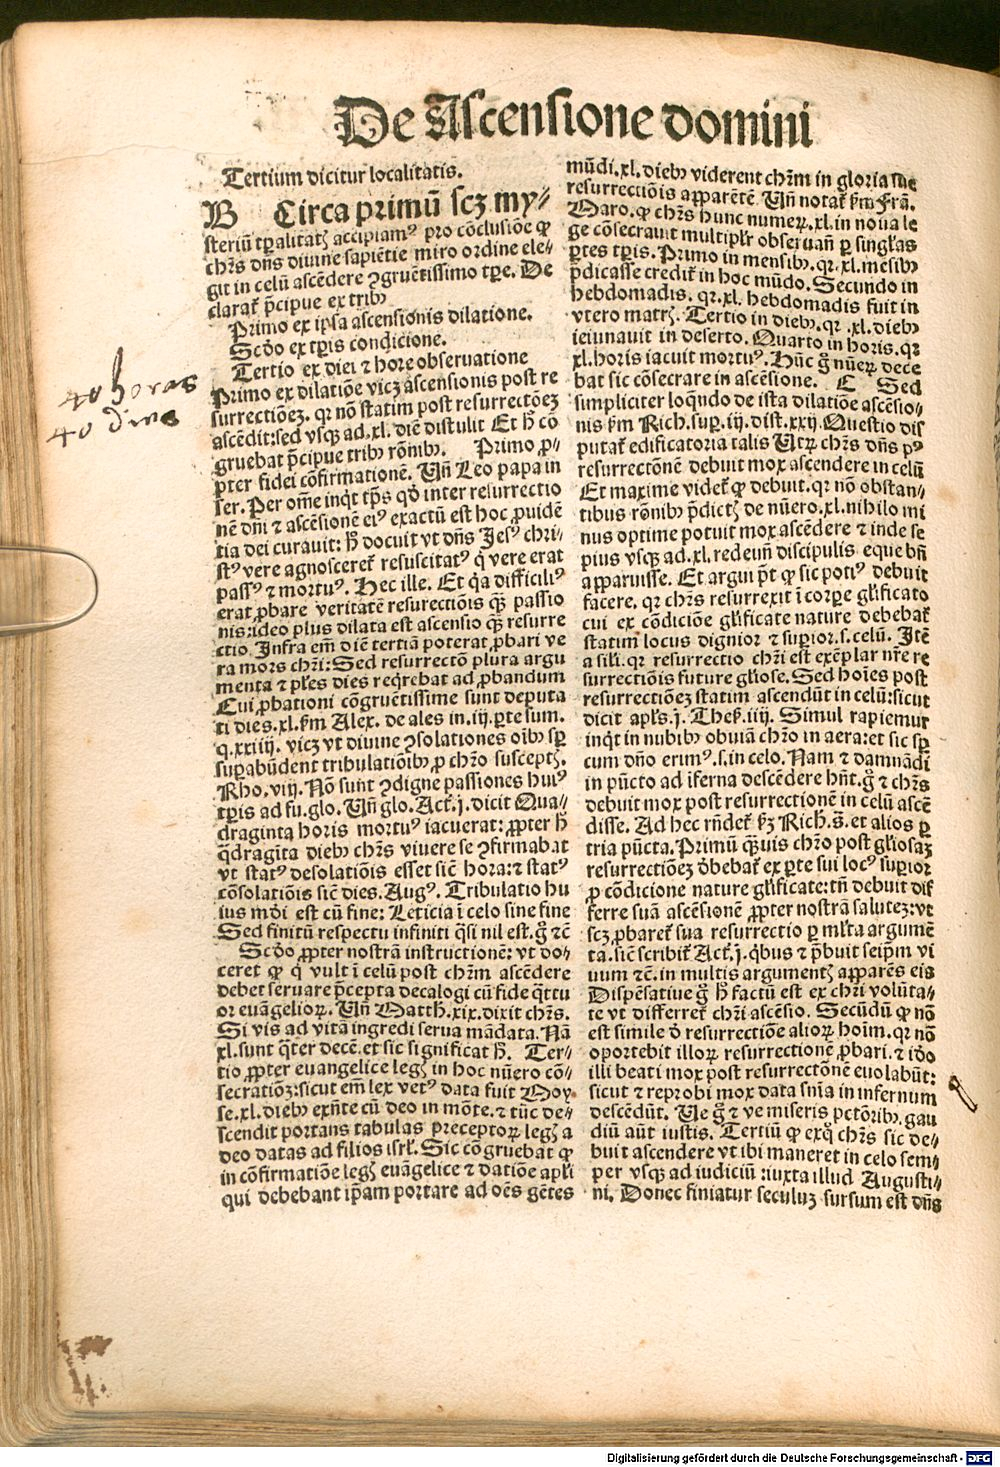 De Ascensione domini
Tertium dicitur localitatis.
B Circa primū scꝫ my⸗
steriū tꝑalitatꝭ accipiamꝰ pro cōclusiōe ꝙ
chr̄s dn̄s diuine sapiētie miro ordine ele⸗
git in celū ascēdere ꝯgruētissimo tꝑe. De
clarat᷑ p̄cipue ex tribꝰ
Primo ex ipsa ascensionis dilatione.
Scd̄o ex tꝑis condicione.
Tertio ex diei ⁊ hore obseruatione
Primo ex dilatiōe vicꝫ ascensionis post re
surrectiōeꝫ. qr nō statim post resurrectōeꝫ
ascēdit: sed vsqꝫ ad .xl. diē distulit Et h̄ cō
gruebat p̄cipue tribꝰ rōnibꝰ. Primo ꝓ⸗
pter fidei cōfirmationē. Vn̄ Leo papa in
ser. Per om̄e inqͥt tp̄s qd̄ inter resurrectio
nē dn̄i ⁊ ascēsionē eiꝰ exactū est hoc ꝓuidē
tia dei curauit: h̄ docuit vt dn̄s Jesꝰ chri⸗
stꝰ vere agnosceret᷑ resuscitatꝰ qͥ vere erat
passꝰ ⁊ mortuꝰ. Hec ille. Et qͥa difficiliꝰ
erat ꝓbare veritatē resurectiōis qͣꝫ passio
nis: ideo plus dilata est ascensio qͣꝫ resurre
ctio. Infra em̄ diē tertiā poterat ꝓbari ve
ra mors chr̄i: Sed resurrectō plura argu
menta ⁊ pl̄es dies reqͥrebat ad ꝓbandum
Cui ꝓbationi cōgruētissime sunt deputa
ti dies .xl. ẜm Alex. de ales in .iij. ꝑte sum.
q. xxiiij. vicꝫ vt diuine ꝯsolationes oībꝰ sꝑ
suꝑabūdent tribulatiōibꝰ ꝓ chr̄o susceptꝭ.
Rho. viij. Nō sunt ꝯdigne passiones huiꝰ
tꝑis ad fu. glo. Vn̄ glo. Act̄. j. dicit Qua⸗
draginta horis mortuꝰ iacuerat: ꝓpter h̄
qͣdragīta diebꝰ chr̄s viuere se ꝯfirmabat
vt statꝰ desolatiōis esset sic̄ hora: ⁊ statꝰ
cōsolatiōis sic̄ dies. Augꝰ. Tribulatio hu
ius mōi est cū fine: Leticia ī celo sine fine
Sed finitū respectu infiniti qͣsi nil est. g̊ ⁊c̄
Scd̄o ꝓpter nostrā instructionē: vt do⸗
ceret ꝙ qͥ vult ī celū post chr̄m ascēdere
debet seruare p̄cepta decalogi cū fide qͣttu
or euāgelioꝝ. Vn̄ Matth̄. xix. dixit chr̄s.
Si vis ad vitā ingredi serua mādata. Nā
xl. sunt qͣter decē. et sic significat h̄. Ter⸗
tio ꝓpter euangelice legꝭ in hoc nūero cō⸗
secratiōꝫ: sicut em̄ lex vetꝰ data fuit Moy
se. xl. diebꝰ exn̄te cū deo in mōte. ⁊ tūc de⸗
scendit portans tabulas preceptoꝝ legꝭ a
deo datas ad filios isrl̄. Sic cōgruebat ꝙ
in cōfirmatiōe legꝭ euāgelice ⁊ datiōe apl̄i
qui debebant ip̄am portare ad oēs gētes
mūdi .xl. diebꝰ viderent chr̄m in gloria sue
resurrectiōis apparētē. Vn̄ notat᷑ ẜm Frā.
Maro. ꝙ chr̄s hunc numeꝝ .xl. in noua le
ge cōsecrauit multipl̄r obseruan̄ ꝑ singl̄as
ꝑtes tꝑis. Primo in mensibꝰ. qr .xl. mēsibꝰ
p̄dicasse credit᷑ in hoc mūdo. Secundo in
hebdomadis. qr .xl. hebdomadis fuit in
vtero matrꝭ. Tertio in diebꝰ. qr .xl. diebꝰ
ieiunauit in deserto. Quarto in horis. qr
xl. horis iacuit mortuꝰ. Hūc g̊ nūeꝝ dece
bat sic cōsecrare in ascēsione. C Sed
simpliciter loqͥndo de ista dilatiōe ascēsio⸗
nis ẜm Rich. suꝑ. iij. dist. xxij. Questio dis
putat᷑ edificatoria talis Vtrꝝ chr̄s dn̄s pꝰ
resurrectōnē debuit mox ascendere in celū
Et maxime videt᷑ ꝙ debuit. qꝛ nō obstan⸗
tibus rōnibꝰ p̄dictꝭ de nūero .xl. nihilo mi
nus optime potuit mox ascēdere ⁊ inde se
pius vsqꝫ ad .xl. redeun̄ discipulis eque bn̄
apparuisse. Et argui p̄t ꝙ sic potiꝰ debuit
facere. qr chr̄s resurrexit ī corꝑe gl̄ificato
cui ex cōdiciōe gl̄ificate nature debebat᷑
statim locus dignior ⁊ suꝑior .s. celū. Itē
a sil̄i. qr resurrectio chr̄i est exēplar nr̄e re
surrectiōis future gl̄iose. Sed hoīes post
resurrectiōeꝫ statim ascendūt in celū: sicut
dicit apl̄s .j. Theſ. iiij. Simul rapiemur
inqͥt in nubibꝰ obuiā chr̄o in aera: et sic sꝑ
cum dn̄o erimꝰ .s. in celo. Nam ⁊ damnādī
in pūcto ad īferna descēdere hn̄t. g̊ ⁊ chr̄s
debuit mox post resurrectionē in celū ascē
disse. Ad hec rn̄det᷑ ẜꝫ Rich. s̄. et alios ꝑ
tria pūcta. Primū qͣꝫuis chr̄o post gl̄iosaꝫ
resurrectiōeꝫ d̄bebat᷑ ex ꝑte sui locꝰ suꝑior
ꝓ cōdicione nature gl̄ificate: tn̄ debuit dif
ferre suā ascēsionē ꝓpter nostrā salutez: vt
scꝫ ꝓbaret᷑ sua resurrectio ꝑ ml̄ta argumē
ta. sic̄ scribit᷑ Act̄. j. qͥbus ⁊ p̄buit seip̄m vi
uum ⁊c̄. in multis argumentꝭ apparēs eis
Dispēsatiue g̊ h̄ factū est ex chr̄i volūta⸗
te vt differret᷑ chr̄i ascēsio. Secūdū ꝙ nō
est simile d̄ resurrectiōe alioꝝ hoīm. qr nō
oportebit illoꝝ resurrectionē ꝓbari. ⁊ iō
illi beati mox post resurrectōnē euolabūt:
sicut ⁊ reprobi mox data sn̄ia in infernum
descēdūt. Ve g̊ ⁊ ve miseris pctōribꝰ, gau
diū aūt iustis. Tertiū ꝙ exqͦ chr̄s sic de⸗
buit ascendere vt ibi maneret in celo sem⸗
per vsqꝫ ad iudiciū: iuxta illud Augusti⸗
ni. Donec finiatur seculuꝫ sursum est dn̄s
40 horas
40 dies
Digitalisierung gefördert durch die Deutsche Forschungsgemeinschaft - DFG